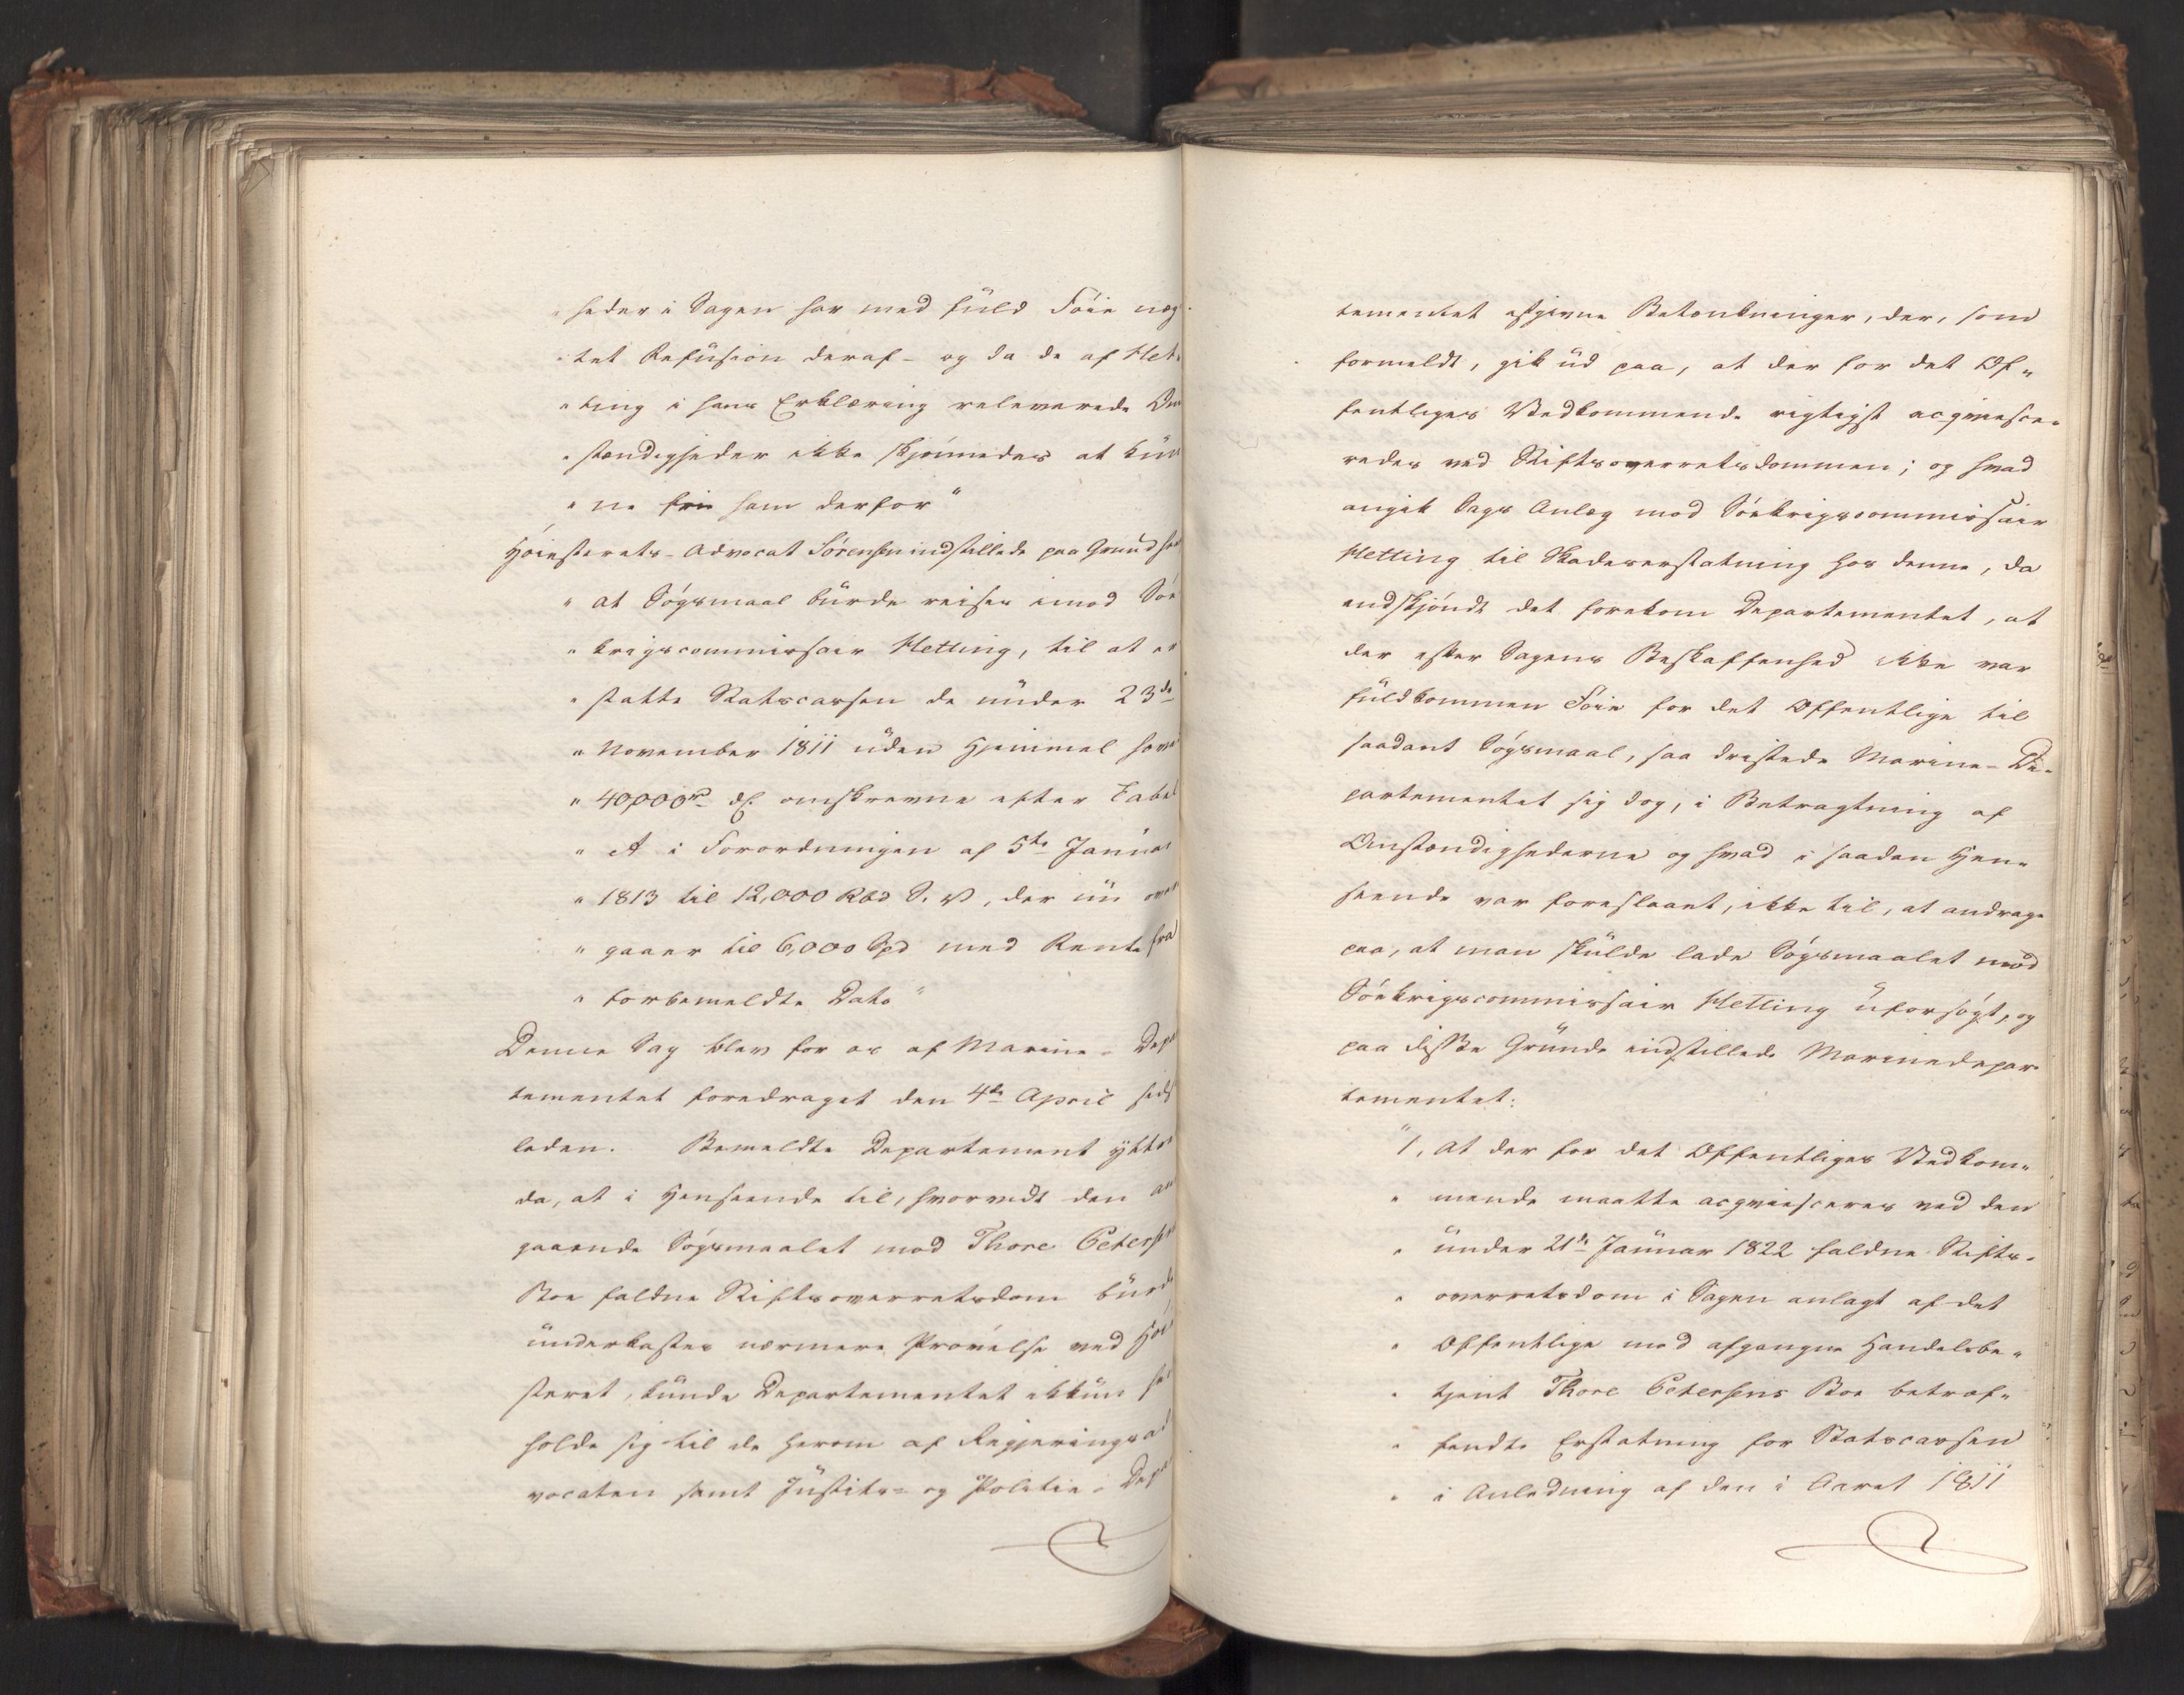 "heder i Sagen har med fuld Føie næg
"tet Refusion deraf – og da de af Het„
"ting i hans Erklæring releverede Om
"stændigheder ikke skjønnedes at kun
"ne frie ham derfor"
Høiesterets-Advocat Sørensen indstillede paa Grund heraf
"at Søgsmaal burde reises imod Søe
"krigscommissair Hetting, til at er
"statte Statscassen de under 23de
"November 1811 uden Hjemmel hævede
"40,000rd dC. omskrevne efter Tabel
"A i Forordningen af 5te Januar
"1813 til 12,000 Rbd S. V, der nu over
"gaaer til 6,000 Spd med Rente fra
"forbemeldte Dato"
Denne Sag blev for os af Marine-Depar
tementet foredraget den 4de April sidst
leden. Bemeldte Departement yttre
de, at i Henseende til, hvorvidt den an
gaaende Søgsmaalet mod Thore Petersens
Boe faldne Stiftsoverretsdom burde
underkastes nærmere Prøvelse ved Høie
steret, kunde Departementet ikkun hen
holde sig til de herom af Regjeringsad
vocaten samt Justits- og Politie-Depar
tementet afgivne Betænkninger, der, som
formeldt, gik ud paa, at der for det Of„
fentliges Vedkommende rigtigst acqviesce„
redes ved Stiftsoverretsdommen; og hvad
angik Sags Anlæg mod Søekrigscommissair
Hetting til Skadeserstatning hos denne, da
endskjøndt det forekom Departementet, at
der efter Sagens Beskaffenhed ikke var
fuldkommen Føie for det Offentlige til
saadant Søgsmaal, saa dristede Marine-De„
partementet sig dog, i Betragtning af
Omstændighederne og hvad i saadan Hen„
seende var foreslaaet, ikke til, at andrage
paa, at man skulde lade Søgsmaalet mod
Søekrigscommissair Hetting uforsøgt, og
paa disse Grunde indstillede Marinedepar„
tementet:
"1, at der for det Offentliges Vedkom„
" mende maatte acqviesceres ved den
" under 21de Januar 1822 faldne Stifts„
" overretsdom i Sagen anlagt af det
" Offentlige mod afgangne Handelsbe„
" tjent Thore Petersens Boe betræf„
" fende Erstatning for Statscassen
" i Anledning af den i Aaret 1811